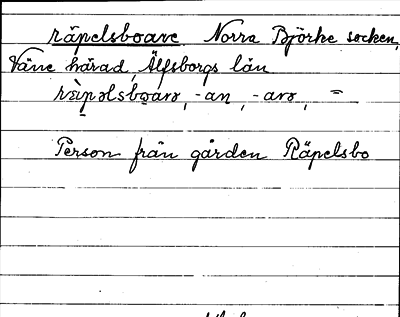 räpelsboare Norra Björke socken,
Väne härad, Älfsborgs län
rὲpəlsbǫarə, -an, -arə, =
Person från gården Räpelsbo